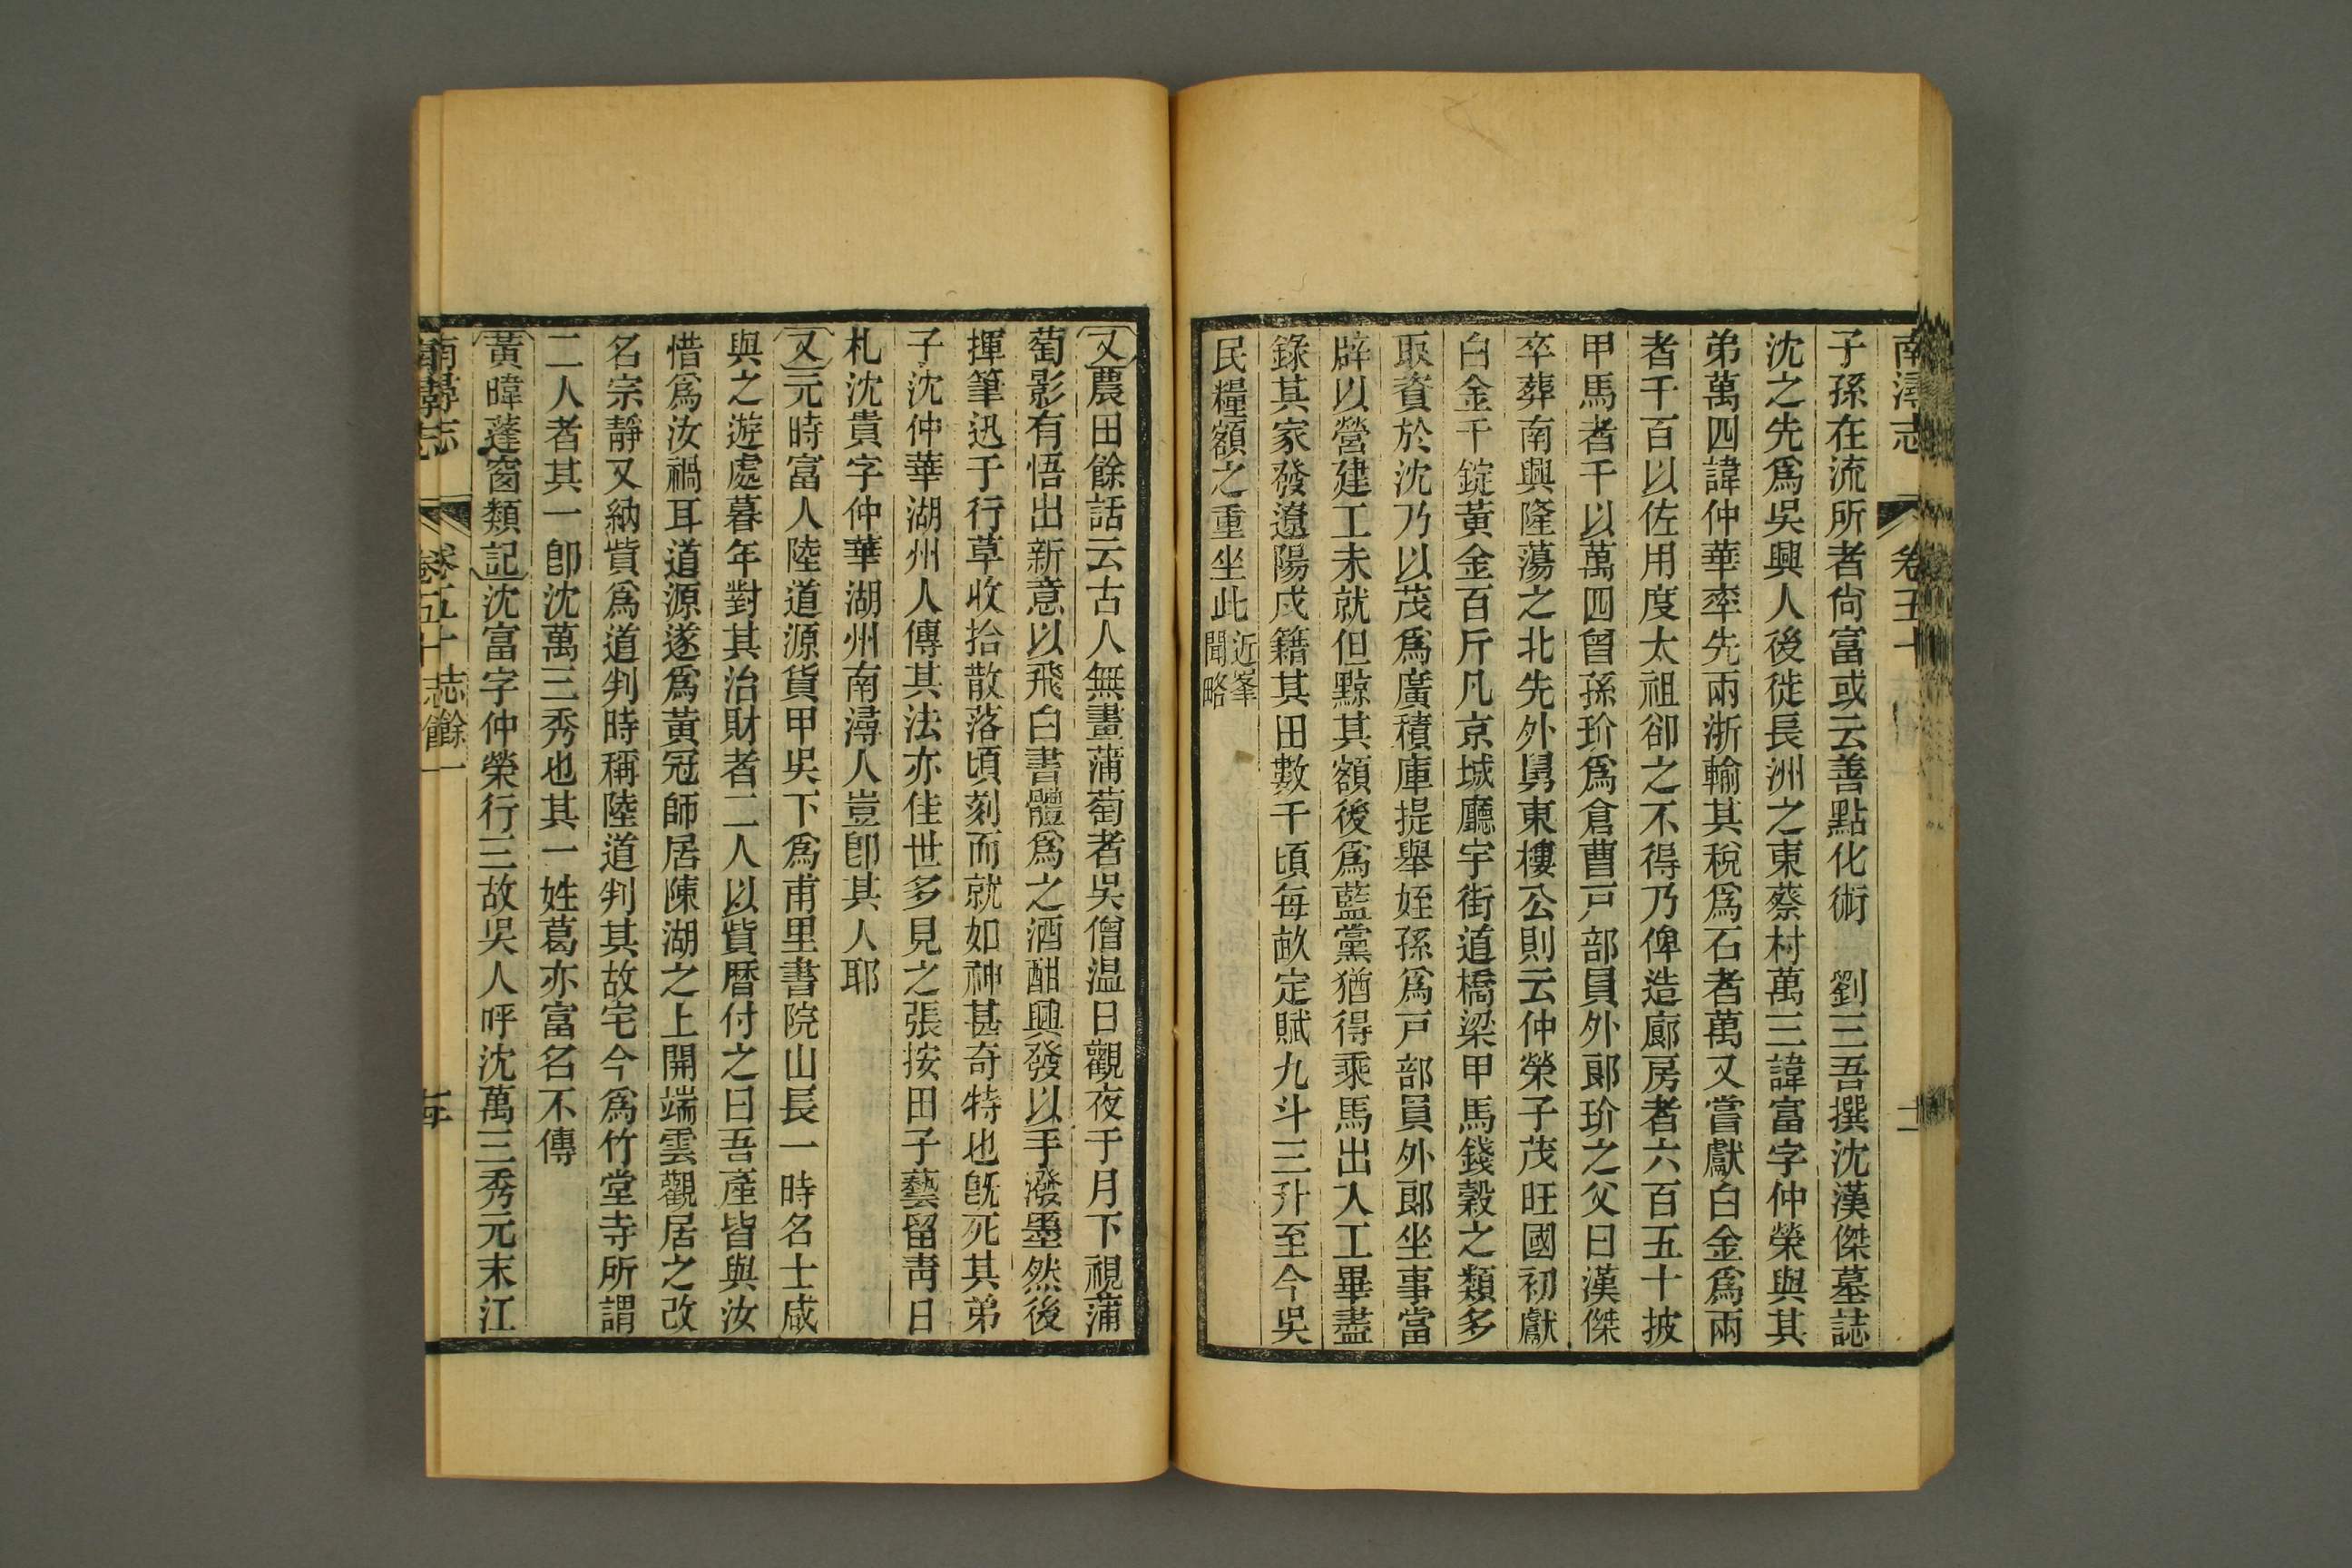 南潯志
卷五十
子孫在流所者尙富或云善點化術　劉三吾撰沈漢傑墓誌
沈之先爲吳興人後徙長洲之東蔡村萬三諱富字仲榮與其
弟萬四諱仲華率先兩浙輸其稅爲石者萬又嘗獻白金爲兩
者千百以佐用度太祖卻之不得乃俾造廊房者六百五十披
甲馬者千以萬四曾孫玠爲倉曹戸部員外郎玠之父曰漢傑
卒葬南興隆蕩之北先外舅東樓公則云仲榮子茂旺國初獻
白金千錠黃金百斤凡京城廳宇街道橋梁甲馬錢穀之類多
取資於沈乃以茂爲廣積庫提舉姪孫爲戸部員外郎坐事當
辟以營建工未就但黥其額後爲藍黨猶得乘馬出入工畢盡
錄其家發遼陽戍籍其田數千頃每畝定賦九斗三升至今吳
民糧額之重坐此近峯
聞略
又農田餘話云古人無畫蒲萄者吳僧温日觀夜于月下視蒲
萄影有悟出新意以飛白書體爲之酒酣興發以手潑墨然後
揮筆迅于行草收拾散落頃刻而就如神甚奇特也旣死其弟
子沈仲華湖州人傳其法亦佳世多見之張按田子藝留靑日
札沈貴字仲華湖州南潯人豈卽其人耶
又元時富人陸道源貨甲吳下爲甫里書院山長一時名士咸
與之遊處暮年對其治財者二人以貲曆付之曰吾產皆與汝
惜爲汝禍耳道源遂爲黃冠師居陳湖之上開端雲觀居之改
名宗靜又納貲爲道判時稱陸道判其故宅今爲竹堂寺所謂
二人者其一卽沈萬三秀也其一姓葛亦富名不傳
黃暐蓬窗類記沈富字仲榮行三故吳人呼沈萬三秀元末江
南潯志
卷五十
志餘一